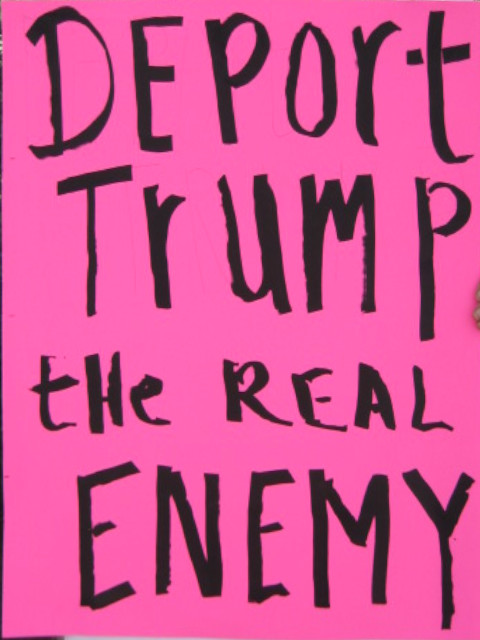 DEPOrt
TrUMP
tHe REAL
ENEMY